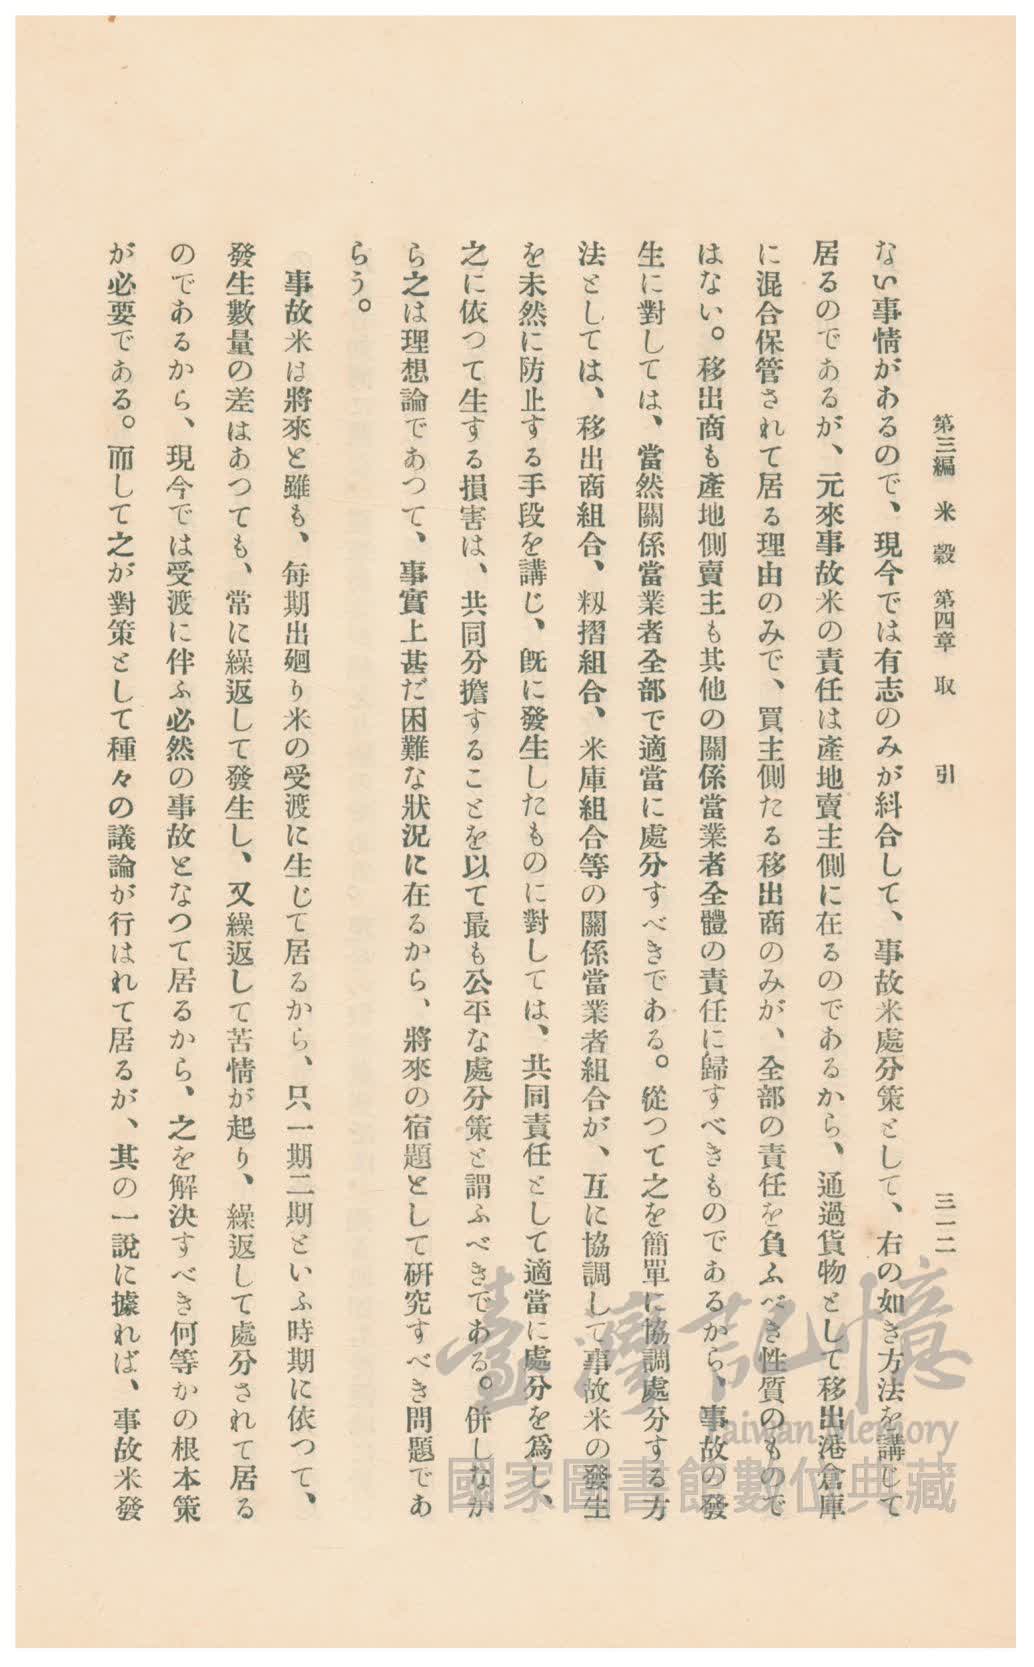 第三編 米穀 第四章 取引 三一二
ない事情があるので、現今では有志のみが糾合して、事故米處分策として、右の如き方法を講じて
居るのであるが、元來事故米の責任は產地賣主側に在るのであるから、通過貨物として移出港倉庫
に混合保管されて居る理由のみで、買主側たる移出商のみが、全部の責任を負ふべき性質のもので
はない。移出商も產地側賣主も其他の關係當業者全體の責任に歸すべきものであるから、事故の發
生に對しては、當然關係當業者全部で適當に處分すべきである。從つて之を簡單に協調處分する方
法としては、移出商組合、籾摺組合、米庫組合等の關係當業者組合が、互に協調して事故米の發生
を未然に防止する手段を講じ、既に發生したものに對しては、共同責任として適當に處分を爲し、
之に依つて生する損害は、共同分擔することを以て最も公平な處分策と謂ふべきである。併しなが
ら之は理想論であつて、事實上甚だ困難な狀況に在るから、將來の宿題として硏究すべき問題であ
らう。
事故米は將來と雖も、每期出廻り米の受渡に生じて居るから、只一期二期といふ時期に依つて、
發生數量の差はあつても、常に繰返して發生し、又繰返して苦情が起り、繰返して處分されて居る
のであるから、現今では受渡に伴ふ必然の事故となつて居るから、之を解決すべき何等かの根本策
が必要である。而して之が對策として種々の議論が行はれて居るが、其の一說に據れば、事故米發
臺灣記憶
Taiwan Memory
國家圖書館數位典藏